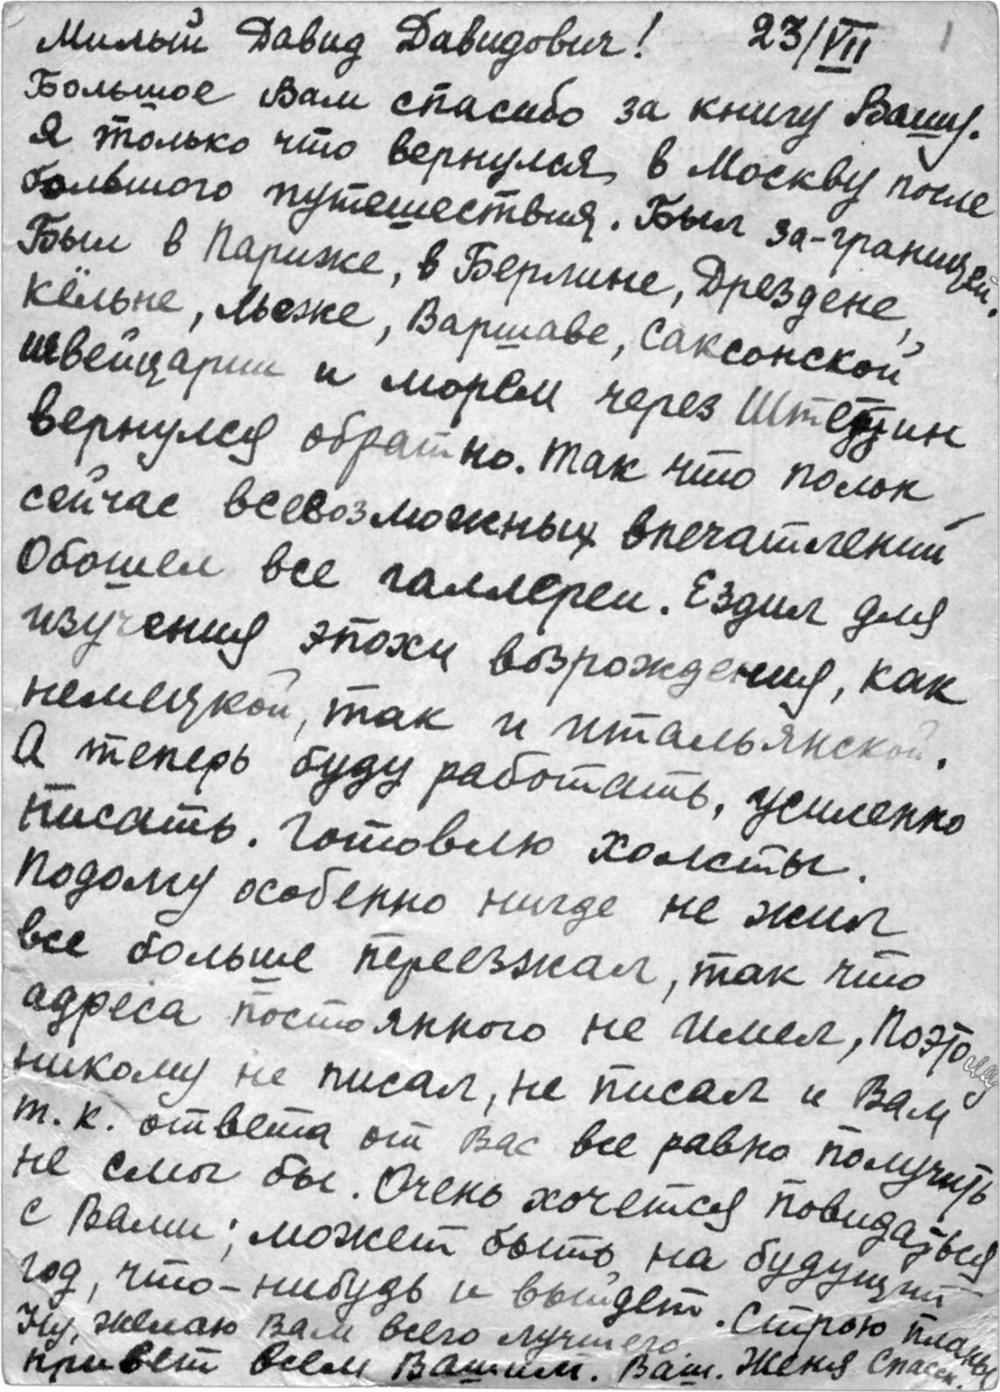 Милый Давид Давидович! 23/VII 1
Большое Вам спасибо за книгу Вашу.
Я только что вернулся в Москву после
большого путешествия. Был за-границей.
Был в Париже, в Берлине, Дрездене,
Кёльне, Льеже, Варшаве, Саксонской
швейцарии и морем через Штетин
вернулся обратно. Так что полон
сейчас всевозможных впечатлений
Обошел все галлереи. Ездил для
изучения эпохи возрождения, как
немецкой, так и итальянской.
А теперь буду работать, усиленно
писать. Готовлю холсты.
Подолгу особенно нигде не жил
все больше переезжал, так что
адреса постоянного не имел, Поэтому
никому не писал, не писал и Вам
т.к. ответа от Вас все равно получить
не смог бы. Очень хочется повидаться
с Вами; может быть на будущий
год, что-нибудь и выйдет. Строю планы
Ну, желаю Вам всего лучшего
привет всем Вашим. Ваш. Женя